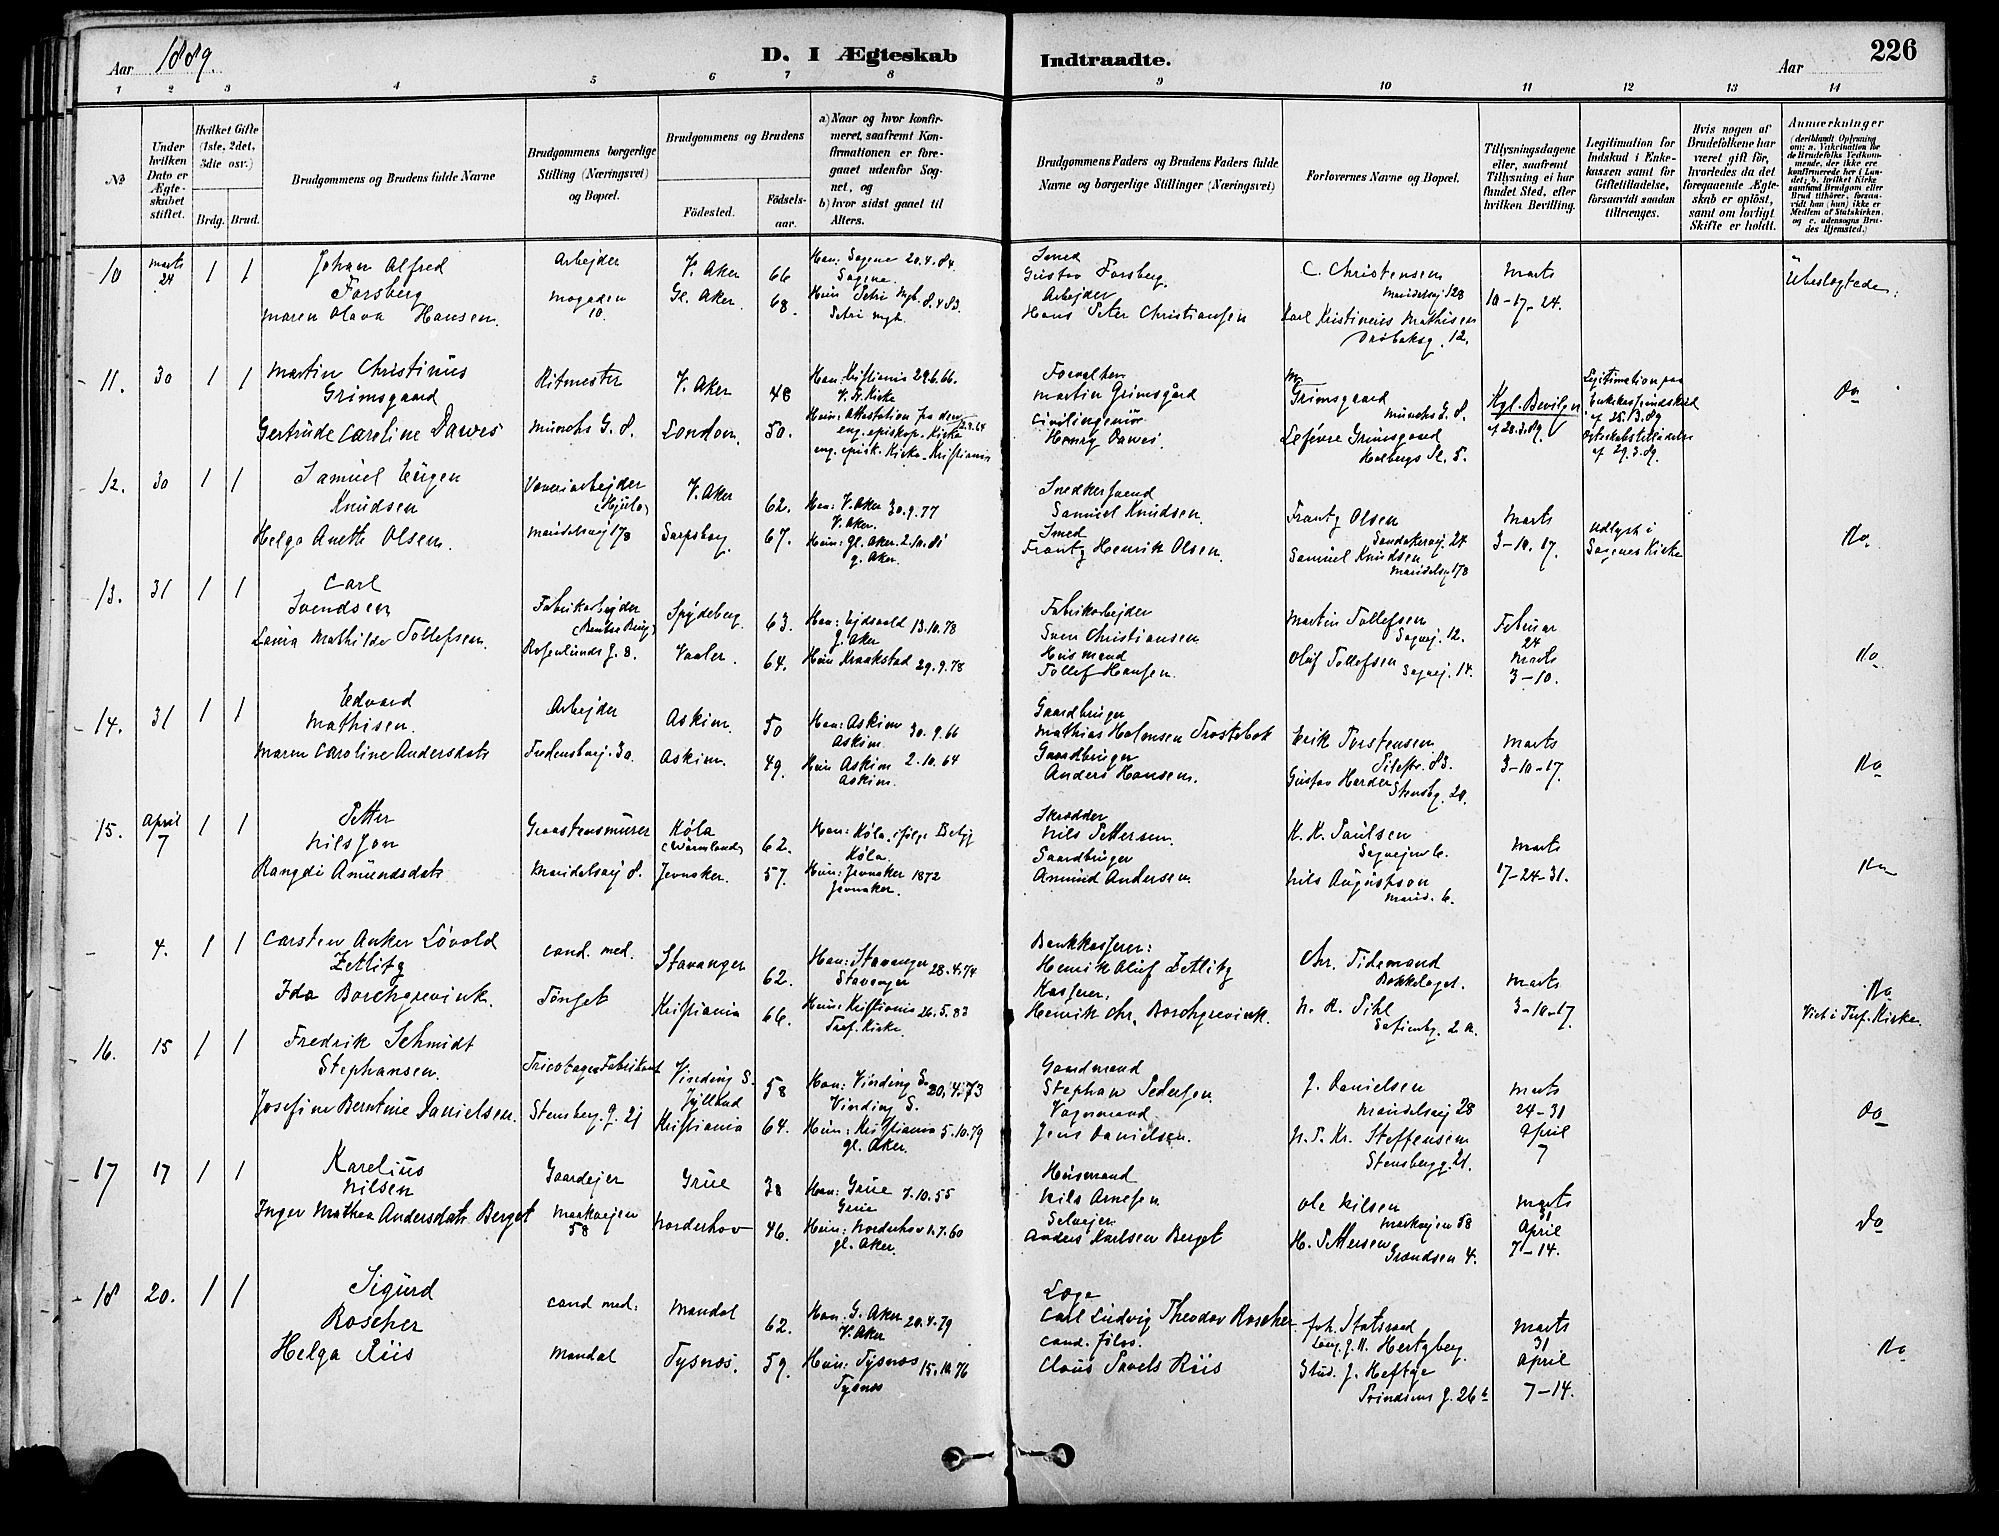 Aar 1889.
D. I Ægteskab Indtraadte.
Aar
226
1 2 3 4 5 6 7 8 9 10 11 12 13 14
No
Under hvilken Dato er Ægteskabet stiftet.
Hvilket Gifte (1ste, 2det, 3die osv.)
Brdg. Brud.
Brudgommens og Brudens fulde Navne
Brudgommens borgerlige Stilling (Næringsvei) og Bopæl.
Brudgommens og Brudens
Fødested.
Fødselsaar.
a) Naar og hvor konfirmeret, saafremt Konfirmationen er foregaaet udenfor Sognet, og
b) hvor sidst gaaet til Alters.
Brudgommens Faders og Brudens Faders fulde Navne og borgerlige Stillinger (Næringsvei)
Forlovernes Navne og Bopæl.
Tillysningsdagene eller, saafremt Tillysning ei har fundet Sted, efter hvilken Bevilling.
Legitimation for Indskud i Enkekassen samt for Giftetilladelse, forsaavidt saadan tiltrænges.
Hvis nogen af Brudefolkene har været gift før, hvorledes da det foregaaende Ægteskab er opløst, samt om lovligt Skifte er holdt.
Anmærkninger
(deriblandt Oplysning om: a. Vakcination for de Brudefolks Vedkommende, der ikke ere konfirmerede her i Landet; b. hvilket Kirkesamfund Brudgom eller Brud tilhører, forsaavidt han (hun) ikke er Medlem af Statskirken, og c. udensogns Brudes Hjemsted.)
10 Marts 24 1 1 Johan Alfred Forsberg Arbejder V. Aker 66 Han: Sagene 20.4.84. Sagene. Smed Gustav Forsberg. C. Christensen Maridalsvej 128 Marts 10-17-24. Ubeslægtede.
Maren Olava Hansen. 10. Gl. Aker. 68. Hun Petri Mgh. 8.4.83. Petri mgh. Arbejder Hans Peter Christiansen Karl Kristinius Mathisen Drøbaksg. 12.
11. 30 1 1 Martin Christinus Grimsgaard Ritmester V. Aker 48 Han: Kristiania 29.6.66. V. A. Kirke Forvalter Martin Grimsgård Grimsgaard Munchs G. 8. Kgl. Bevilgn. af 28.3.89. Legitimation paa Enkekasseindskud af 25.13.89 af 29.3.89. Do
Gertrude Caroline Dawes Munchs G. 8. London. 50. Hun: Attestation fra den eng. episkop. Kirke eng. episk. Kirke. Kristiania Civilingeniør Henry Dawes Lefévre Grimsgaard Holbergs Pl. 5.
12. 30 1 1 Samuel Eugen Knudsen Væveriarbejder (Hjula) V. Aker 62. Han: V. Aker 30.9.77 V. Aker. Snedkersvend Samuel Knudsen. Frantz Olsen Sandakervej. 24 Marts 3-10.17. Udlyst i Sagenes Kirke Do
Helga Anette Olsen. Maridalsvej 178 Sarpsborg. 67. Hun: Gl. Aker. 2.10.81 g. Aker. Smed Frantz Henrik Olsen. Samuel Knudsen Maridalsv. 178
13. 31 1 1 Carl Svendsen Fabrikarbejder (Bentse Brug) Spydeberg. 63. Han: Ejdsvold 13.10.78 g. Aker Fabrikarbejder Sven Christiansen Martin Tollefsen Sagvej. 12. Februar 24 Marts 3-10. Do
Laura Mathilde Tollefsen. Rosenlunds g. 8. Vaaler. 64. Hun Kraakstad 29.9.78 Husmand Tollef Hansen. Oluf Tollefsen Sagvej. 14.
14. 31 1 1 Edvard Mathisen. Arbejder Askim. 50 Han: Askim 30.9.66 Askim. Gaardbruger Mathias Halvorsen Trøstebok Erik Torstensen Pilestr. 83. Marts 3-10-17. Do
Maren Caroline Andersdatr Fredensborgvej. 30. Askim. 49. Hun Askim 2.10.64 Askim. Gaardbruger Anders Hansen. Gustav Harder Stensbg. 20.
15. April 7 1 1 Petter Nilsson Graastensmurer Køla (Wærmland) 62. Han: Køla. ifølge Betyg Køla. Skrædder Nils Pettersen. K. K. Paulsen Sagvejen 6. Marts 17-24-31. Do
Rangdi Amundsdatr Maridalsvej 8. Jevnaker. 57. Hun: Jevnaker 1872 Jevnaker. Gaardbruger Amund Andersen. Nils Augustson Marid. 6.
4. 1 1 Carsten Anker Løvold Zetlitz cand. med. Stavanger 62. Han: Stavanger 28.4.74 Stavanger Bankkasserer: Henrik Oluf Zetlitz Chr. Tidemand Bekkelaget. Marts 3-10-17. Do
Ida Borchgrevink. Tønset Kristiania 66. Hun: Kristiania 26.5.83 Tref. Kirke Kasserer. Henrik Chr. Borchgrevink. N. R. Pihl Sofienbg. 2 a. Viet i Tref. Kirke.
16. 15 1 1 Fredrik Schmidt Stephansen. Tricotage Fabrikant Vinding S. Jylland 58 Han: Vinding S. 20.4.73 Vinding S. Gaardmand Stephan Pedersen. J. Danielsen Maridalsvej 28 Marts 24-31 April 7 Do
Josefine Berntine Danielsen. Stensberg. g. 21 Kristiania 64. Hun: Kristiania 5.10.79 gl. Aker. Vognmand Jens Danielsen. N. P. Kr. Steffensen Stensbergg. 21.
17 17 1 1 Karelius Nilsen Gaardejer Grue 38 Han: Grue 7.10.55 Grue Husmand Nils Arnesen Ole Nilsen Markvejen 58 Marts 31 April 7-14. Do
Inger Mathea Andersdatr Berget Markvejen 58 Norderhov 46. Hun: Norderhov 1.7.60 gl. Aker. Selvejer Anders Karlsen Berget H. Pettersen Grændsen 4.
18 20. 1 1 Sigurd Roscher cand med: Mandal 62. Han: G. Aker 20.4.79 V. Aker Læge Carl Ludvig Theodor Roscher Fvh. Statsraad J. M. Hertzberg. Marts 31 April 7-14. Do
Helga Riis Mandal Tysnæs. 59. Hun: Tysnæs 15.10.76 Tysnæs cand. filos. Claus Pavels Riis Stud. J. Heftye Prindsens g. 26 b